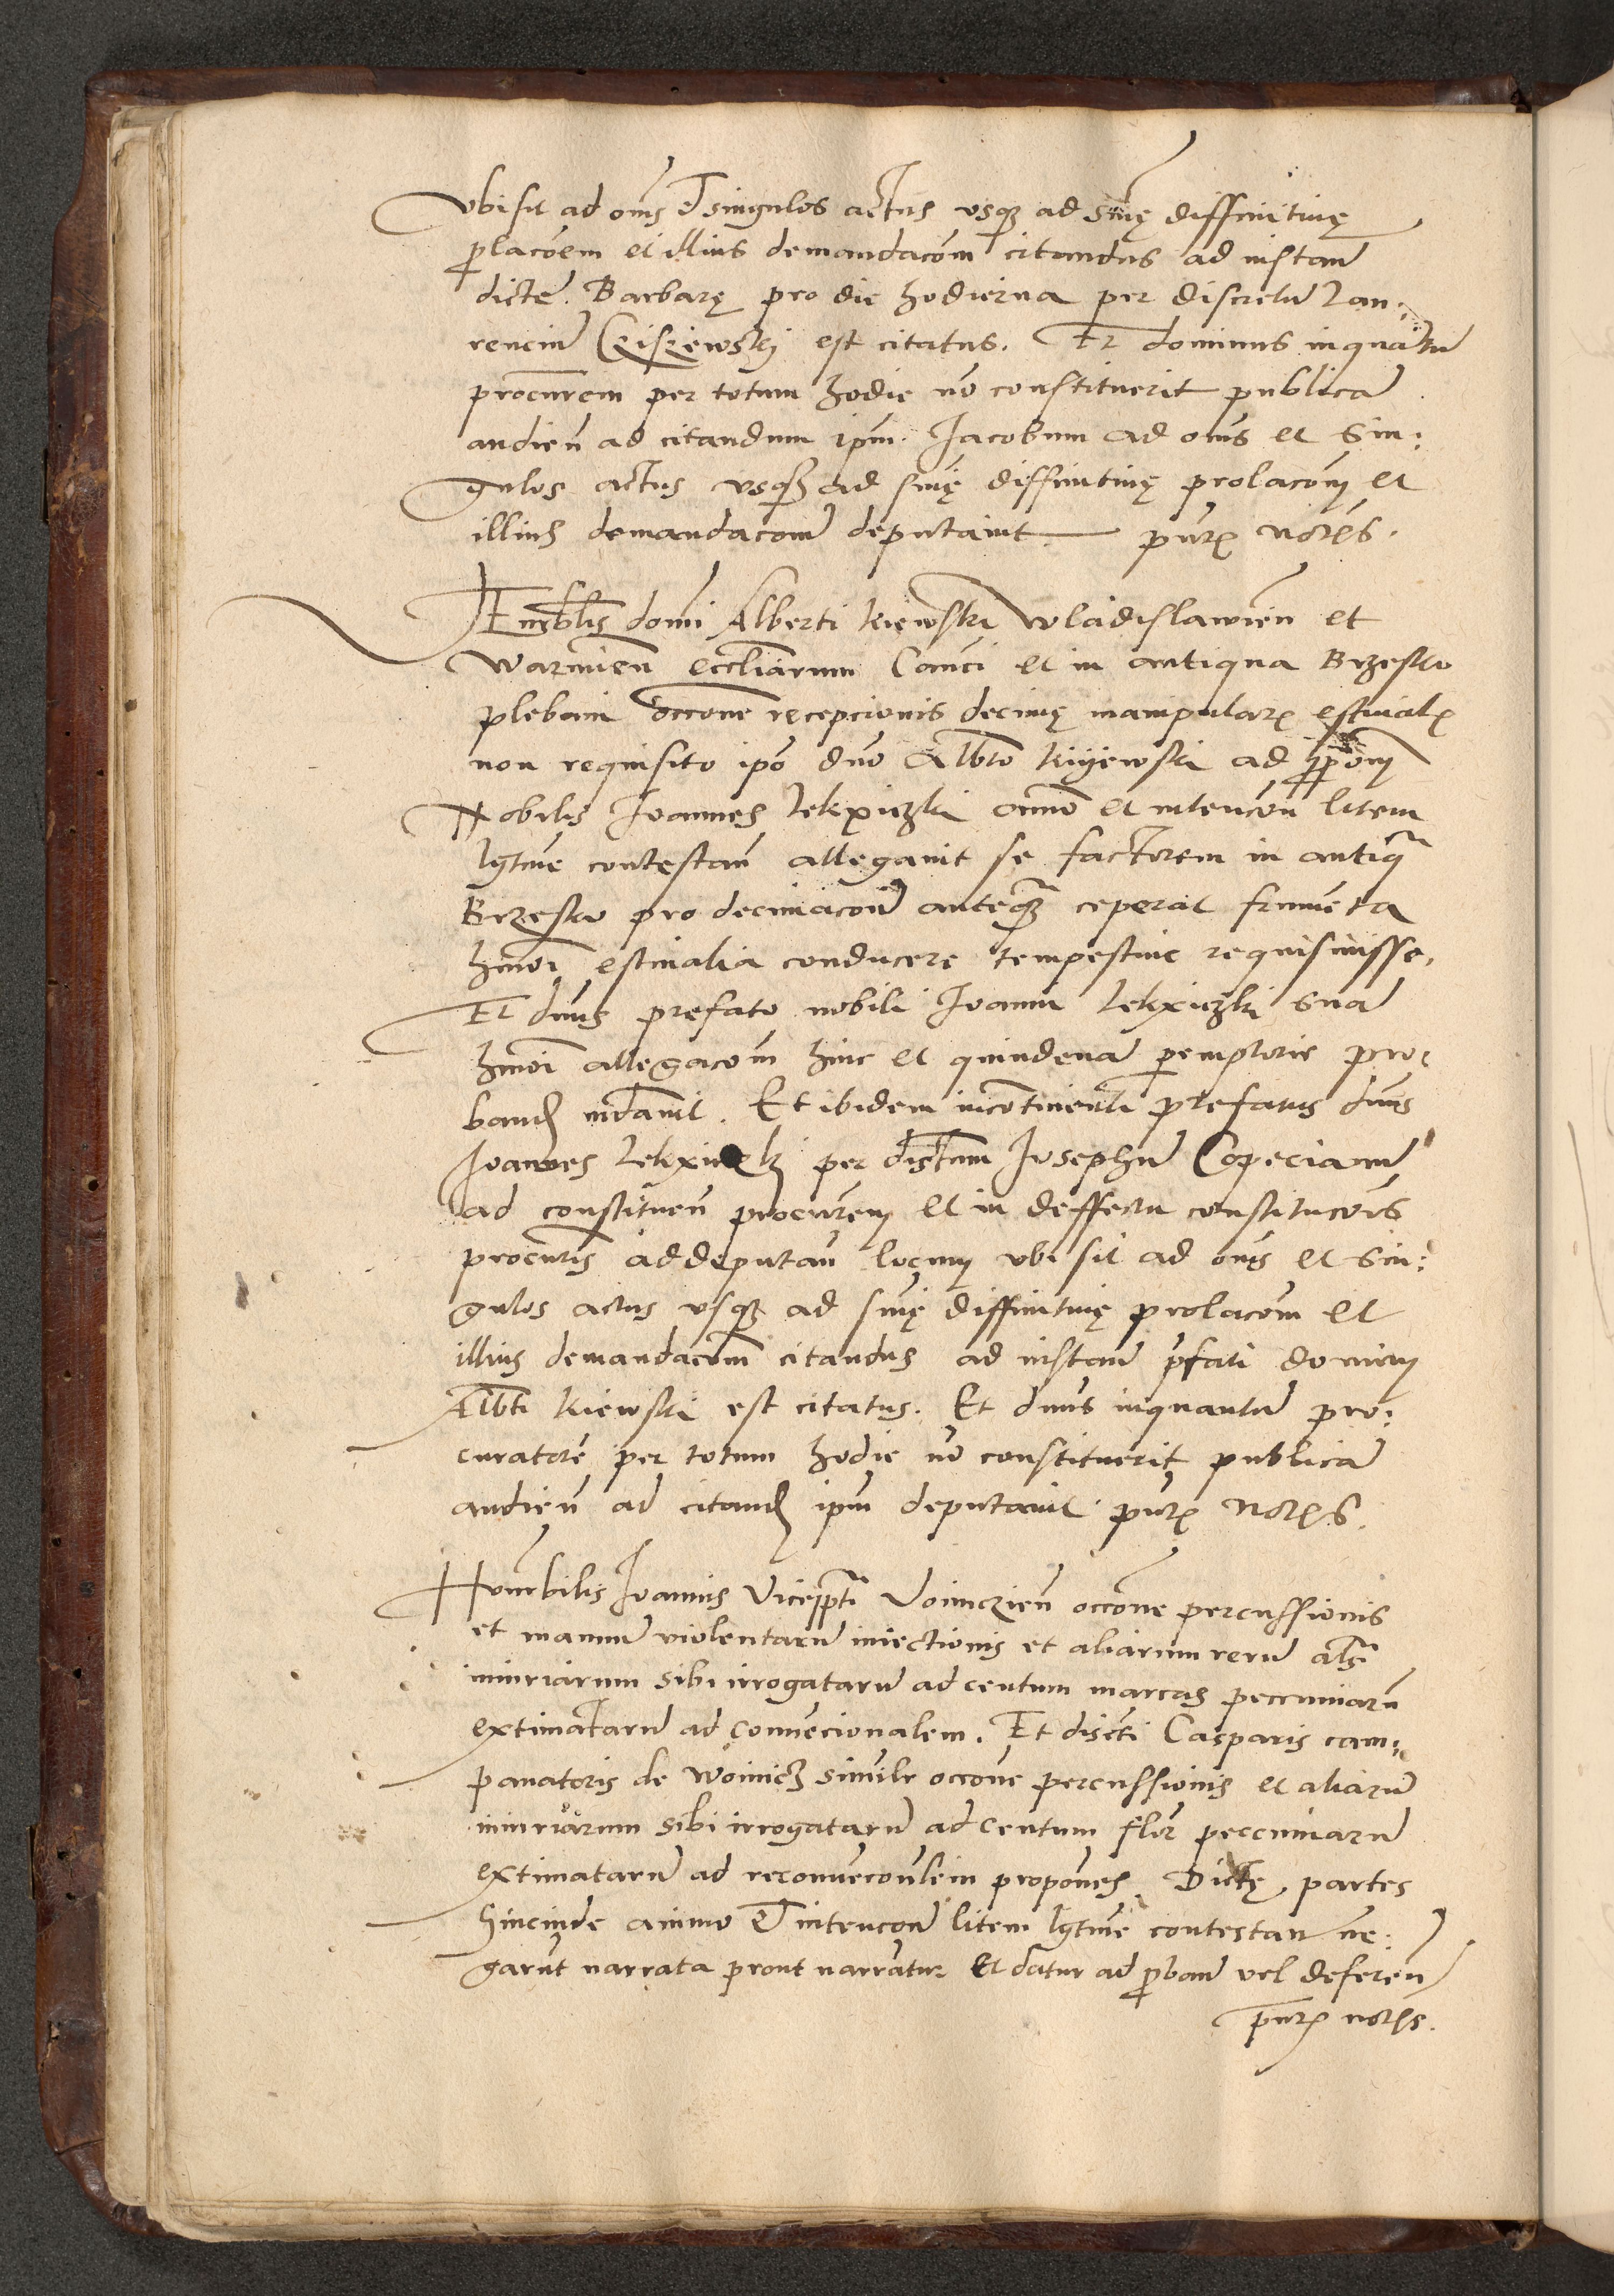 vbi sit ad oms Et singulos actus vsq3 ad snię diffinitiuę
placoem et illius demandacom citandus ad instan
dicte Barbarę pro die hodierna per discretu Lau:
renciu Cziszewskij est citatus. Et dominus inquatu
procurem per totum hodie no constituerit publica
audien ad citandum ipm Jacobum ad oms et sin:
gulos actus vsq3 ad snię diffinitiuę prolacom et
illius demandacom deputauit pntz notes.
Venerblis domi Alberti kiewski wladislauien et
warmien eccliarum Canci et in antiqua Brzesko
plebani occone recepcionis decimę manipularz estiualz
non requisito ipo dno Albto kijewski ad ppom
Nobilis Joannes Lekxiczki animo et intencon litem
lgtme contestan allegauit se factorem in antiq
Brzesko pro decimacom anteq3 ceperat frumenta
hmoi estiualia conducere tempestiue requisiuisse.
Et dnus prefato nobili Joanni Lekxiczki sua
hmoi allegacom hinc et quindena peremptorie pro:
band mdauit. Et ibidem incontinenti prefatus dnus
Joannes per distum Josephu Copeciam
ad constituen procurem et in deffectu constitucois
procutis ad deputan locum vbi sit ad oms et sin:
gulos actus vsq3 ad snię diffinitiuę prolacom et
illius demandacom citandus ad instan pfati domini
Albti kiewski est citatus. Et dnus inquantu pro:
curatore per totum hodie no constituerit publica
audien ad citand ipm deputauit pntz notes.
Honorbilis Joannis Viceppti Voiniczien occone percussionis
et manuu violentaru iniectionis et aliarum reru als
iniuriarum sibi irrogataru ad centum marcas peccuniaru
extimataru ad conuecionalem. Et discti Casparis cam:
panatoris de woinicz simile occone percussionis et aliaru
iniuriarum sibi irrogataru ad centum flor peccuniaru
extimataru ad reconuecoulem propones. Dictę partes
hincinde animo Et intencom litem lgtme contestan ne:
garunt narrata prout narratur et datur ad pban vel deferen
pntz notes.